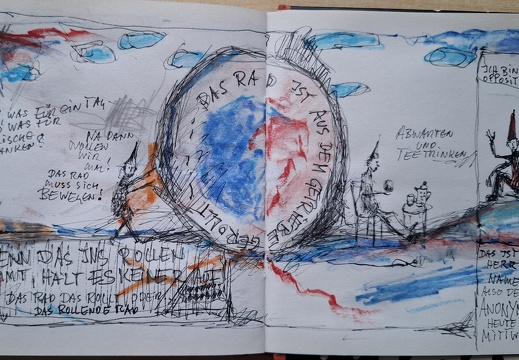 WAS FÜR EIN TAG
WAS FÜR
NA DANN
WOLLEN
WIR
MAL!
DAS RAD
MUSS SICH
BEWEGEN!
DAS RAD IST AUS DEM GETRIEBE
GEROLLT
ABWARTEN
UND
TEETRINKEN
ICH BIN
OPPOSIT
ENN DAS INS ROLLEN
HÄLT ES KEINER
DAS RAD DAS ROLLT ODER
DAS ROLLENDE RAD
DAS IST
HERR
NAME
ALSO
ANONYM
HEUTE
MITTW